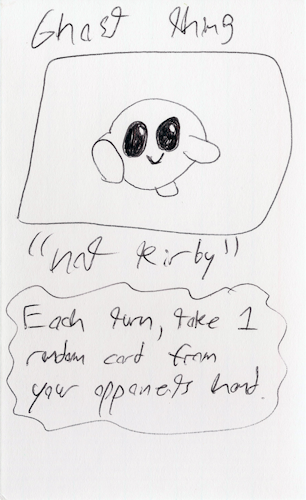 Ghost thing
"not Kirby"
Each turn, take 1
random card from
your opponents hand.